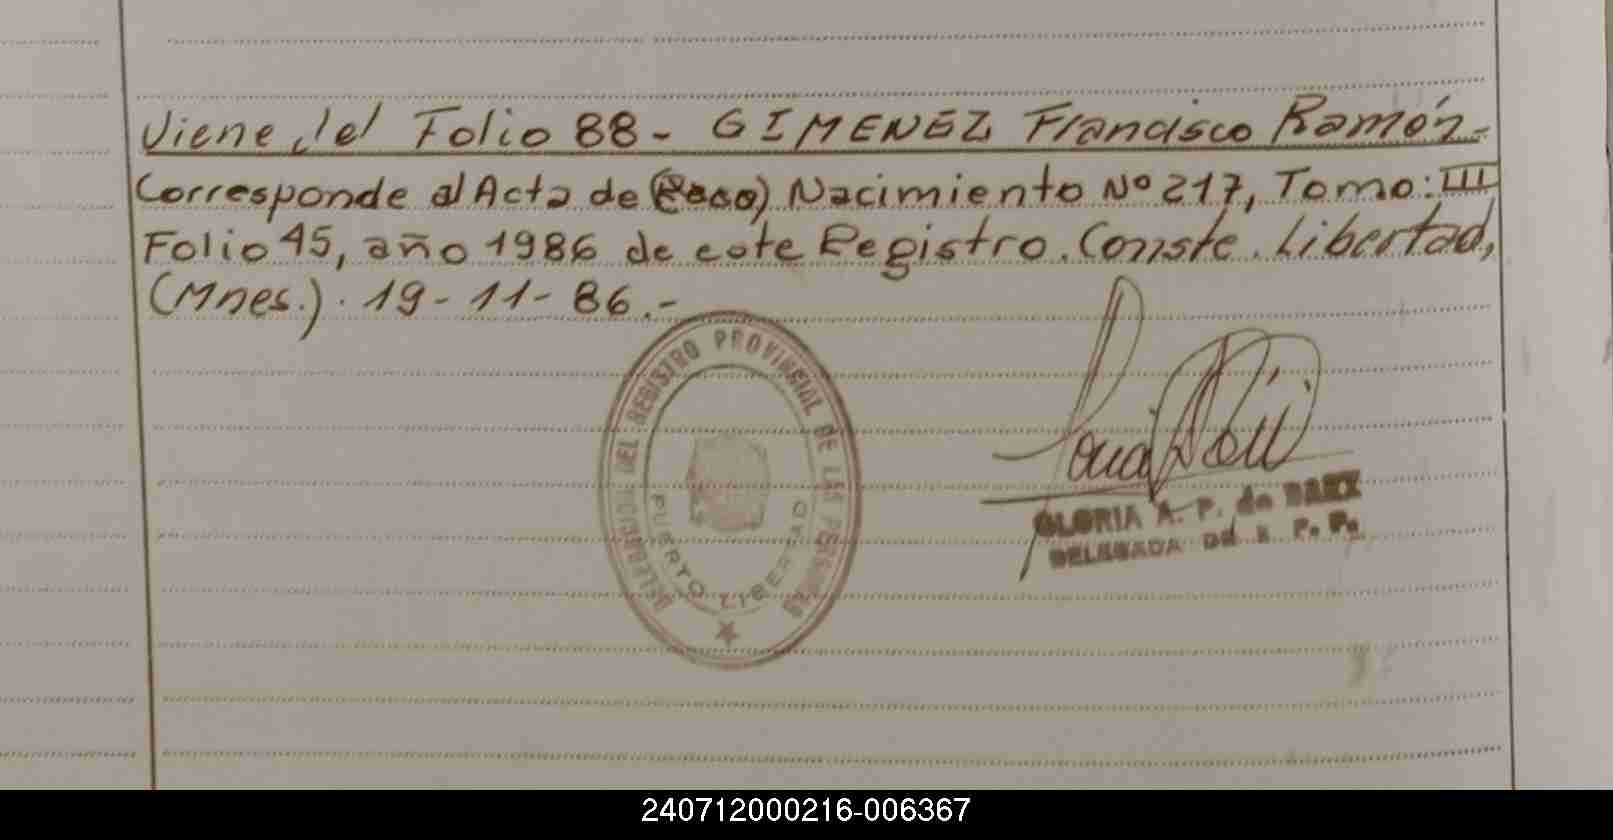 Viene del Folio 88 - GIMENEZ Francisco Ramón -
Corresponde al Acta de () Nacimiento Nº 217, Tomo: III
Folio 45, año 1986 de este Registro. Conste. Libertad,
(Mnes.). 19-11-86.-
DELEGACION DEL REGISTRO PROVINCIAL DE LAS PERSONAS
PUERTO LIBERTAD
GLORIA A. P. de BAEZ
DELEGADA DE R. P. P.
240712000216-006367